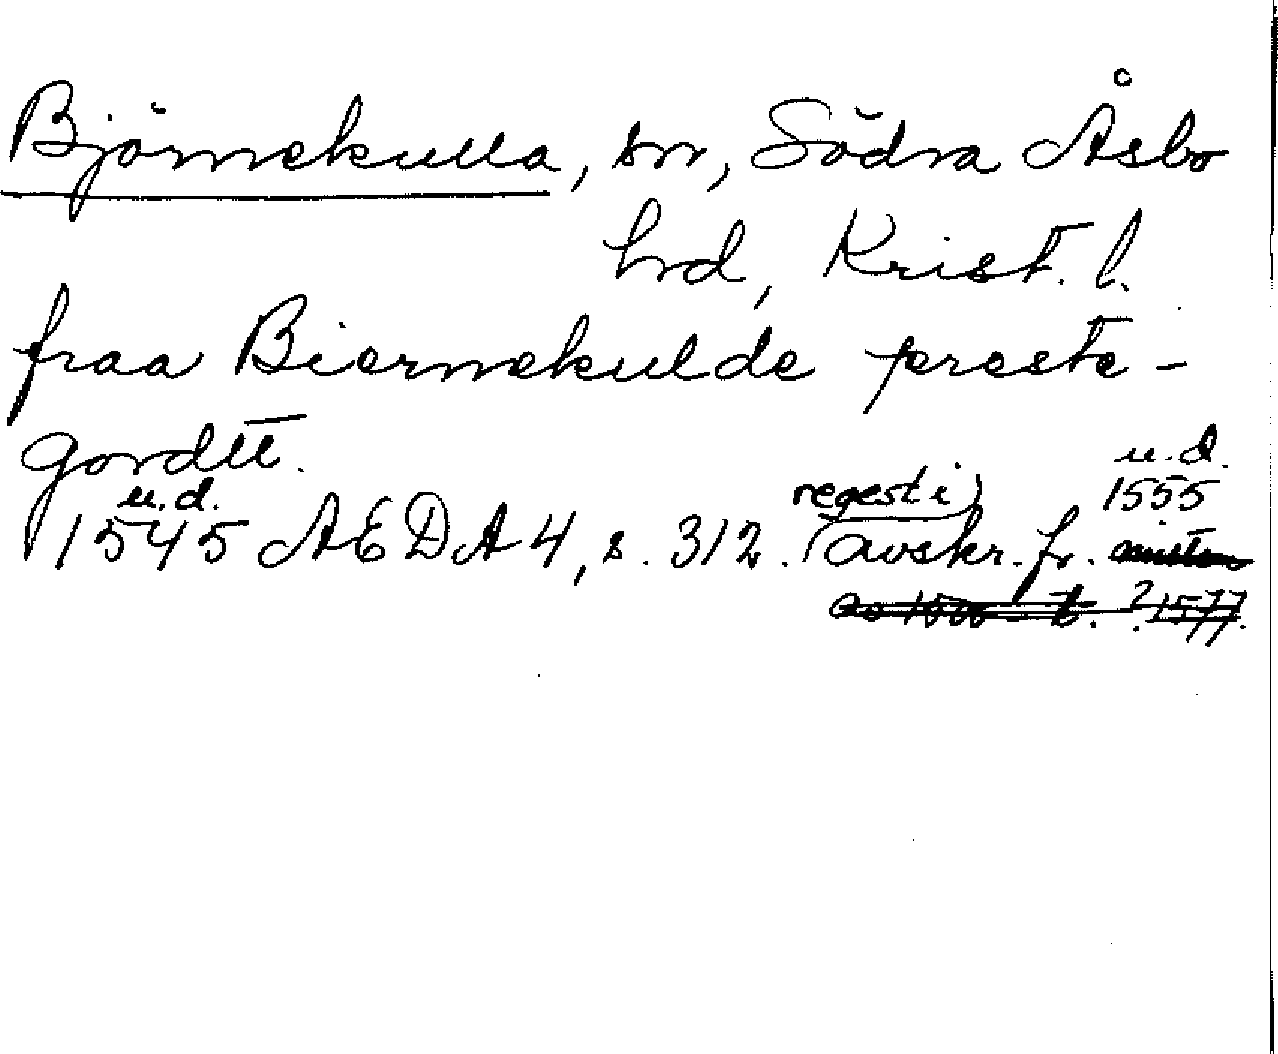 Björnekulla, sn, Södra Åsbo
hrd, Krist. l.
fraa Biernekulde preste-
gordtt.
u.d. regest i u.d.
1545 AEDA 4, s. 312. (avskr. fr. 1555
1500-t. ? 1577.